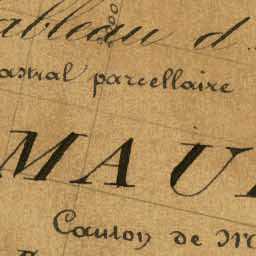 ableau d
astral parcellaire
MAU
Canton de